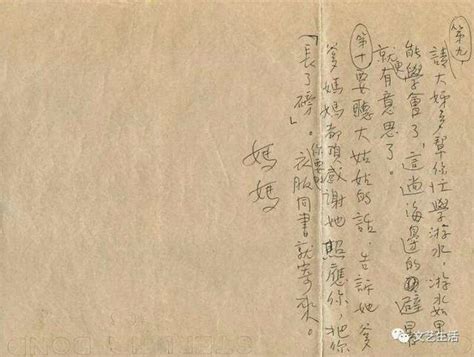 第九
請大姊多幫你忙學游水，游水如果
能學會了，這趟海邊的避暑
就更有意思了。
第十 要聽大姑姑的話，告訴她爹
爹媽媽都頂感謝她照應你，把你
「長了磅」。你要的衣服同書就寄來。
媽媽
文艺生活